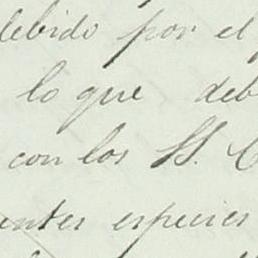 debido por el
lo que deb
con los SS. C
antes especies